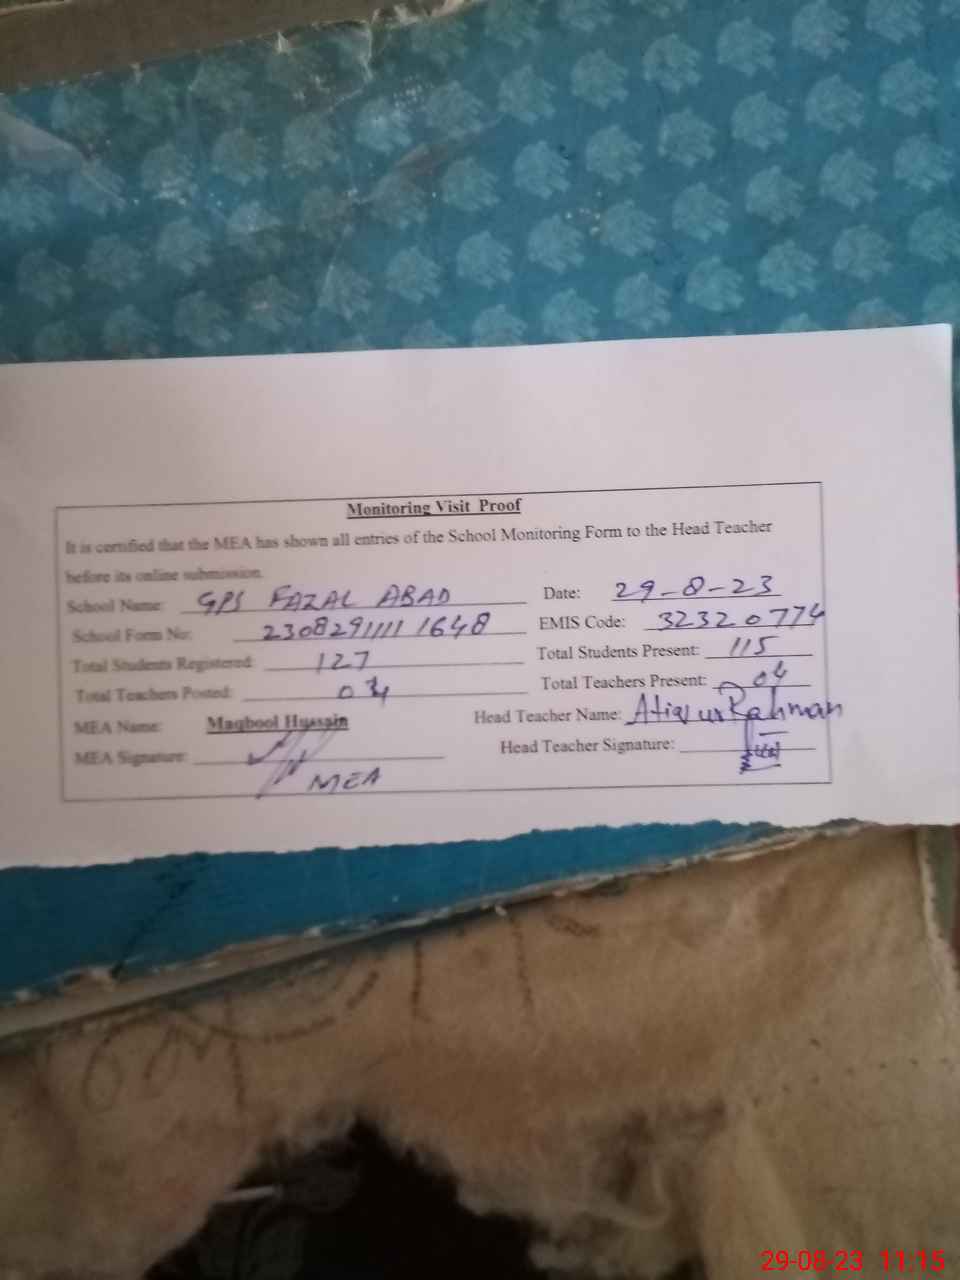 Monitoring Visit Proof
It is certified that the MEA has shown all entries of the School Monitoring Form to the Head Teacher
before its online submission.
School Name: GPS FAZAL ABAD Date: 29-8-23
School Form No: 23082911111648 EMIS Code: 32320774
Total Students Registered: 127 Total Students Present: 115
Total Teachers Posted: 04 Total Teachers Present: 04
MEA Name: Maqbool Hussain Head Teacher Name: Atiq ur Rahman
MEA Signature: Head Teacher Signature:
MEA
29-08-23 11:15